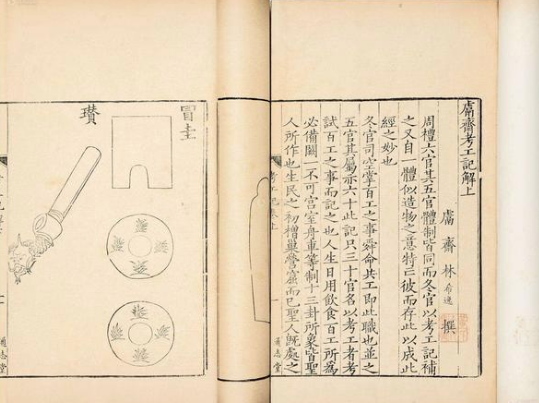 鬳齋考工記解上
鬳齋林希逸撰
周禮六官其五官體制皆同而冬官以考工記補
之又自一體似造物之意特亡彼而存此以成此
經之妙也
冬官司空掌百工之事舜命共工即此職也並之
五官其屬亦六十此記只三十官名以考工者考
試百工之事而記之也人生日用飲食百工所為
必備闕一不可宮室舟車等制十三卦所象皆聖
人所作也生民之初橧巢營窟而已聖人既處之
通志堂
冒圭
瓚
通志堂